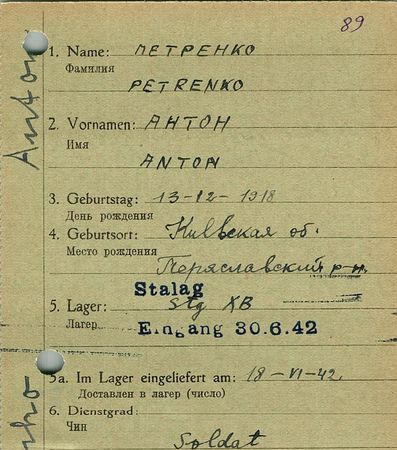 89
Anton
1. Name: ПЕТРЕНКО
Фамилия
PETRENKO
2. Vornamen: АНТОН
Имя
ANTON
3. Geburtstag: 13-12-1918
День рождения
4. Geburtsort: Киевская об.
Место рождения
Переславский р-н.
Stalag
5. Lager: Stg XB
Лагер
Eingang 30.6.42
5a. Im Lager eingeliefert am: 18-VI-42.
Доставлен в лагер (число)
6. Dienstgrad:
Чин
Soldat